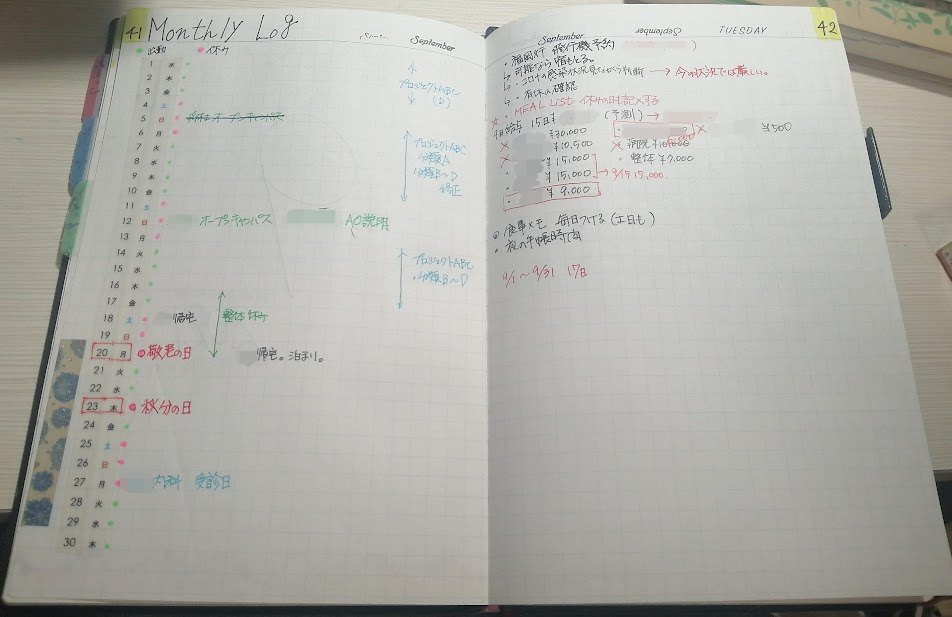 41 Monthly Log
September
休み
1 水
2 木
3 金
4 土
5 日 オープンキャンパス
6 月
7 火
8 水
9 木
10 金
11 土
12 日 オープンキャンパス AO説明
13 月
14 火
15 水
16 木
17 金
18 土 帰宅 整体休み
19 日
20 月 敬老の日 帰宅。泊まり。
21 火
22 水
23 木 秋分の日
24 金
25 土
26 日
27 月 内科 受診日
28 火
29 水
30 木
プロジェクトABC
(D)
プロジェクトABC
分類A
分類B〜D
修正
プロジェクトABC
・分類B〜D
September September TUESDAY 42
・福岡行 飛行機予約
↳ 可能なら
↳ コロナの感染状況見ながら判断 → 今の状況では厳しい。
↳ ・ 確認
☆・MEAL List 休みの日も記入する
9月給与 15日 (予測) →
¥30,000 ×
× ¥10,500 × 病院
× ¥15,000 ・整体 ¥7,000
¥15,000 → 9/15 15,000
・ ¥9,000
¥500
食事メモ 毎日つける (土日も)
・夜の手帳時間
9/1〜9/31 17日